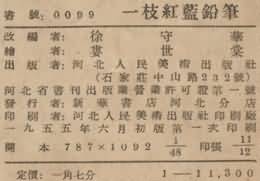 書號: 0099 一枝紅藍鉛筆
改編者: 徐守華
繪者: 婁世棠
出版者: 河北人民美術出版社
(石家莊中山路232號)
河北省書刊出版業營業許可證第一號
發行者: 新華書店河北分店
印刷者: 河北人民美術出版社印刷廠
一九五五年六月初版第一次印刷
開本 787×1092 1/48 印張 11/12
定價: 一角七分 1—11,300